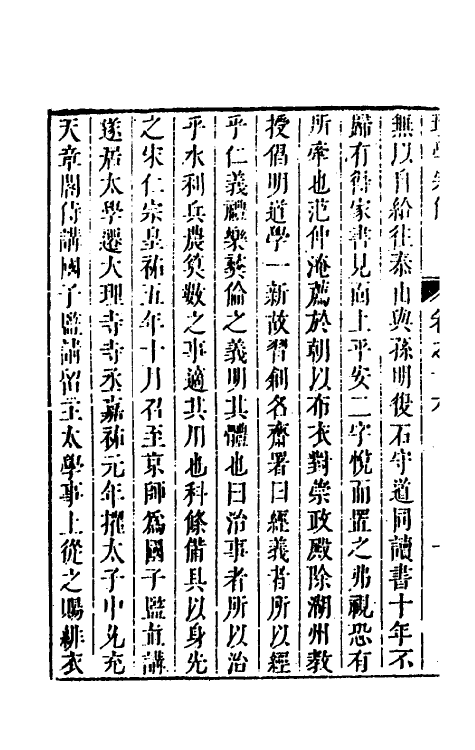 無以自給往泰山與孫明復石守道同讀書十年不
歸有得家書見面上平安二字悅而置之弗視恐有
所牽也范仲淹薦於朝以布衣對崇政殿除湖州教
授倡明道學一新故習創名齋署曰經義者所以經
乎仁義禮樂彞倫之義明其體也曰治事者所以治
乎水利兵農算數之事適其用也科條備具以身先
之宋仁宗皇祐五年十月召至京師為國子監直講
遂居太學遷大理寺寺丞嘉祐元年擢太子中允充
天章閣侍講國子監請留主太學事上從之賜緋衣